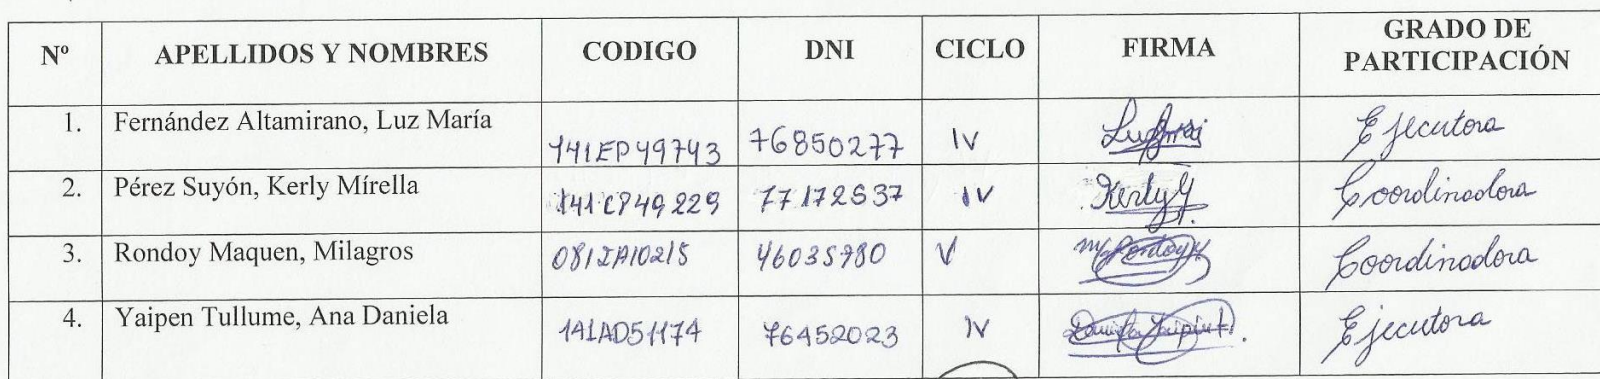 Nº APELLIDOS Y NOMBRES CODIGO DNI CICLO FIRMA GRADO DE PARTICIPACIÓN
1. Fernández Altamirano, Luz María 141EP49743 76850277 IV Ejecutora
2. Pérez Suyón, Kerly Mírella 141CP49229 77172537 IV Kerly Coordinadora
3. Rondoy Maquen, Milagros 081IA10215 46035780 V Coordinadora
4. Yaipen Tullume, Ana Daniela 141AD51174 76452023 IV Ejecutora